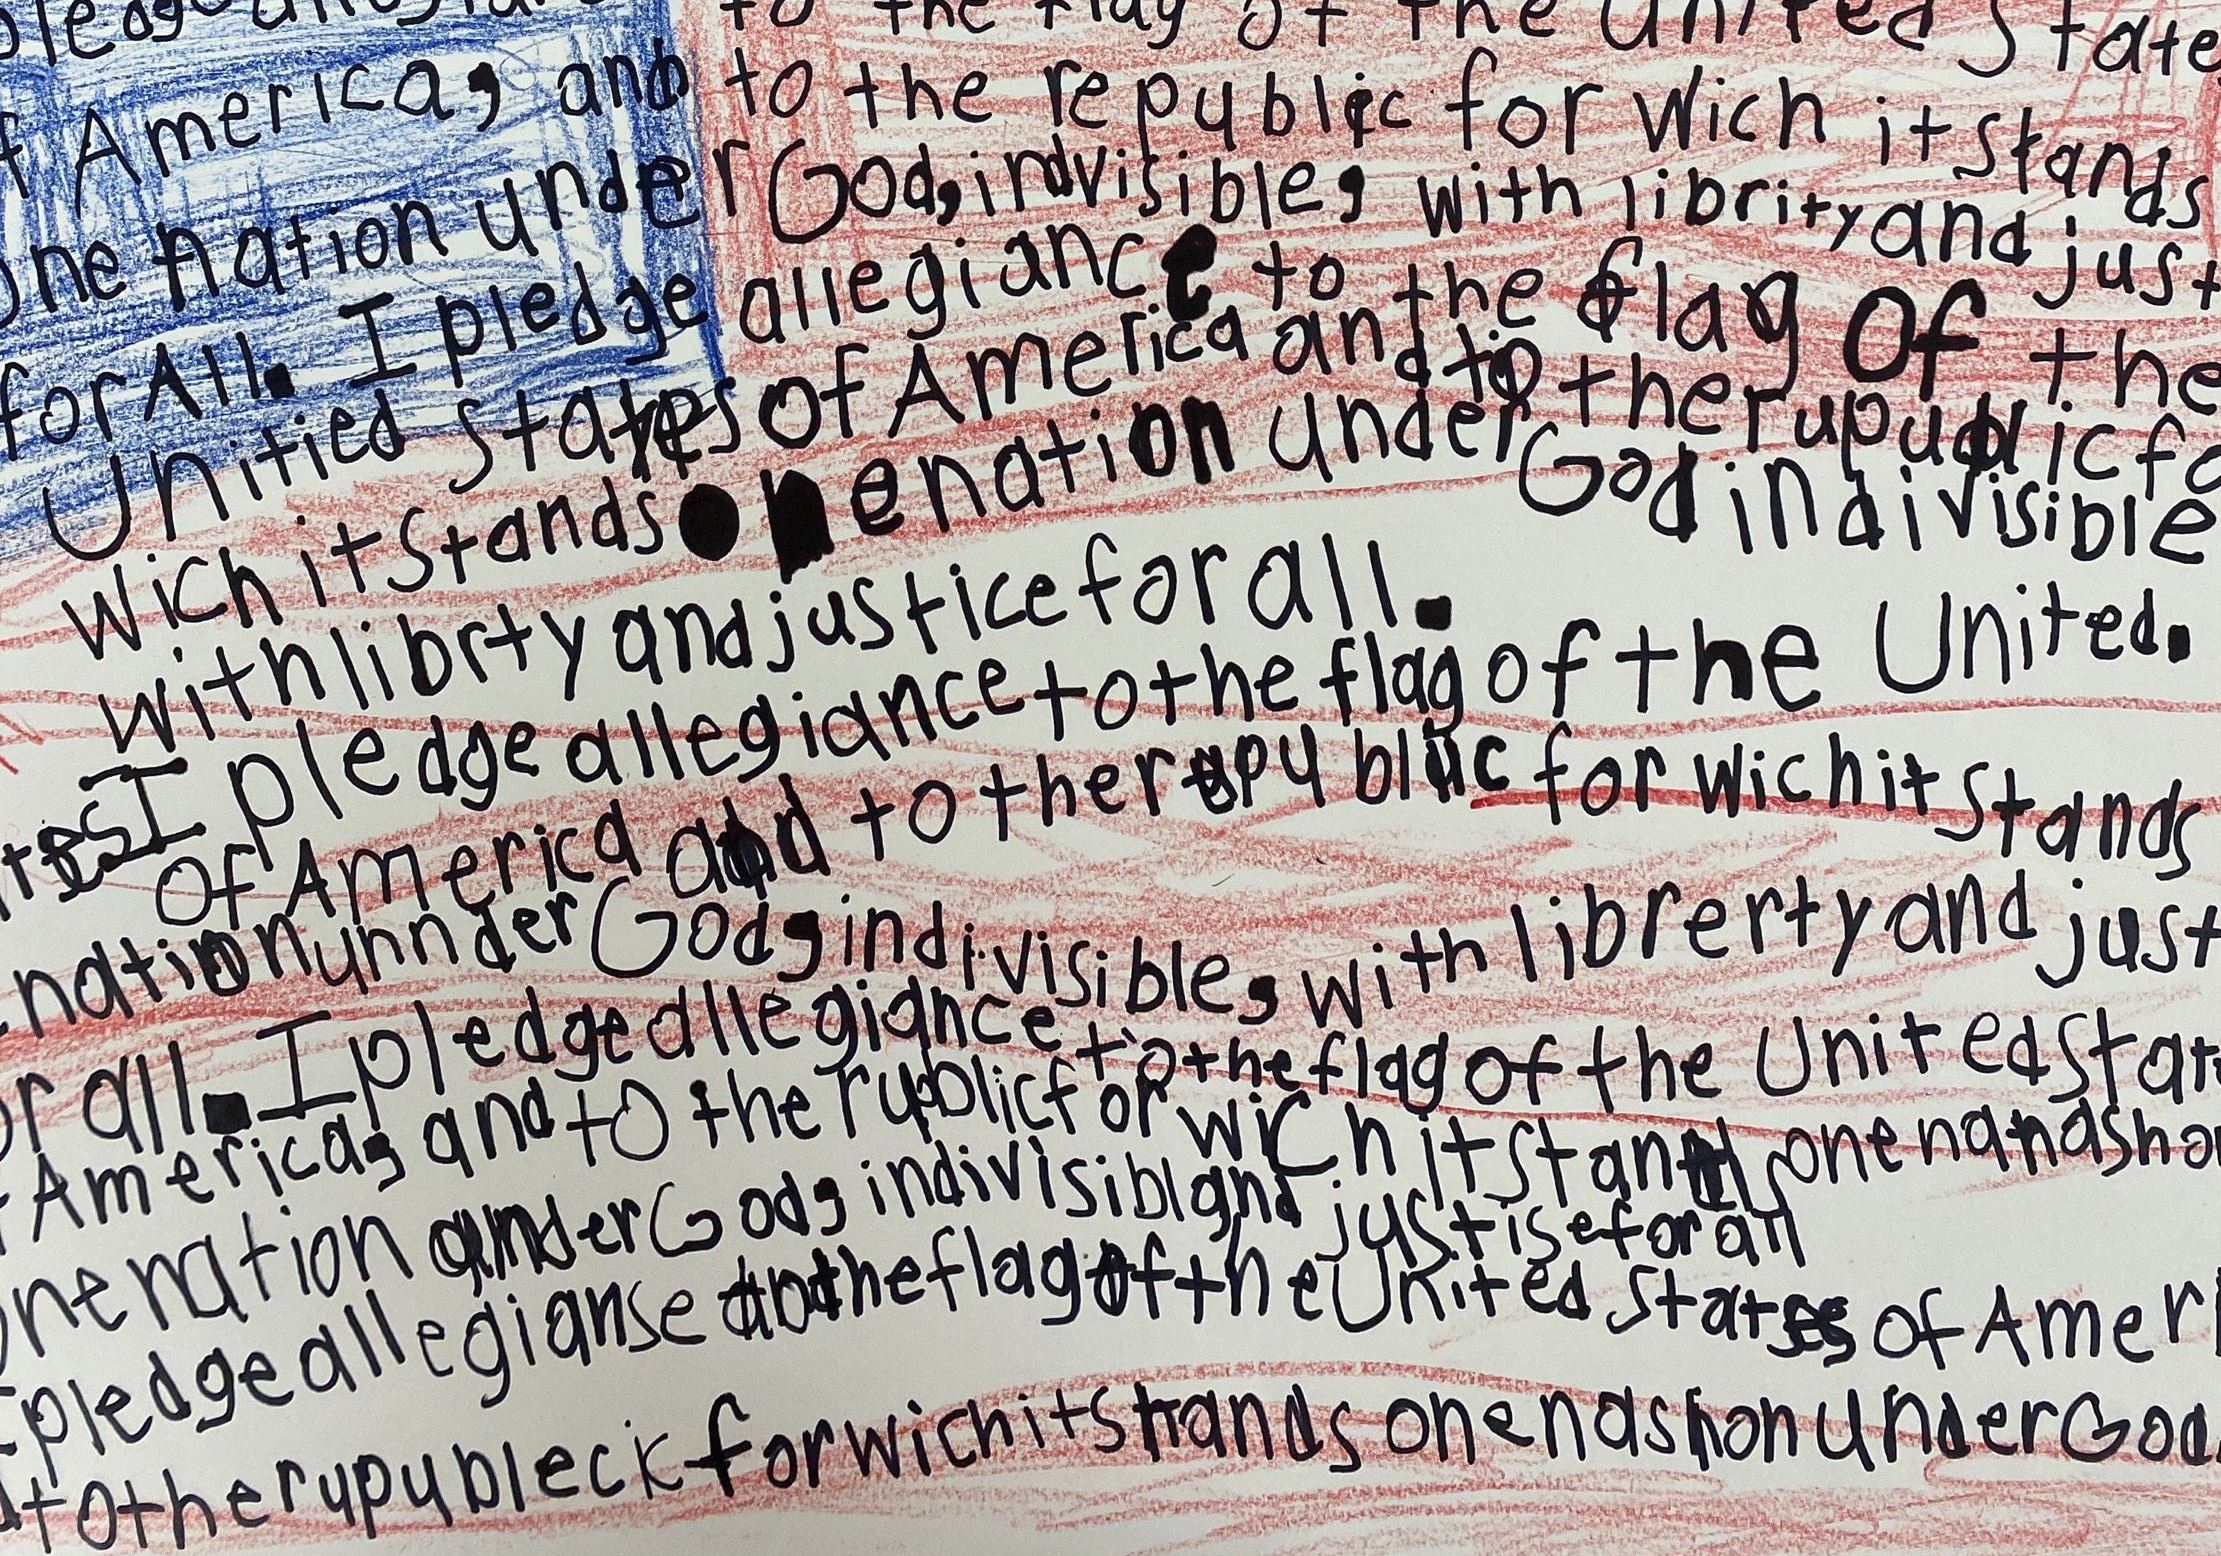 pledge to the flag of the United State
f America, and to the republic for wich it stands
One nation under God, indvisible, with librity and just
for All. I pledge allegiance to the flag Of the
Unitied states of America and to the rupublic fo
wich it stands one nation under God indivisible
with librty and justice for all.
I pledge allegiance to the flag of the United.
tes Of America and to the republic for wich it stands
nation unnder God, indivisible, with librerty and just
or all. I pledge allegiance to the flag of the United Stat
f America, and to the rupblic for wich it stands one nandshon
One nation under God, indivisibl and justise for all
I pledge allegianse to the flag of the United States of Ameri
d to the rupubleck for wich it stands one nashon under God